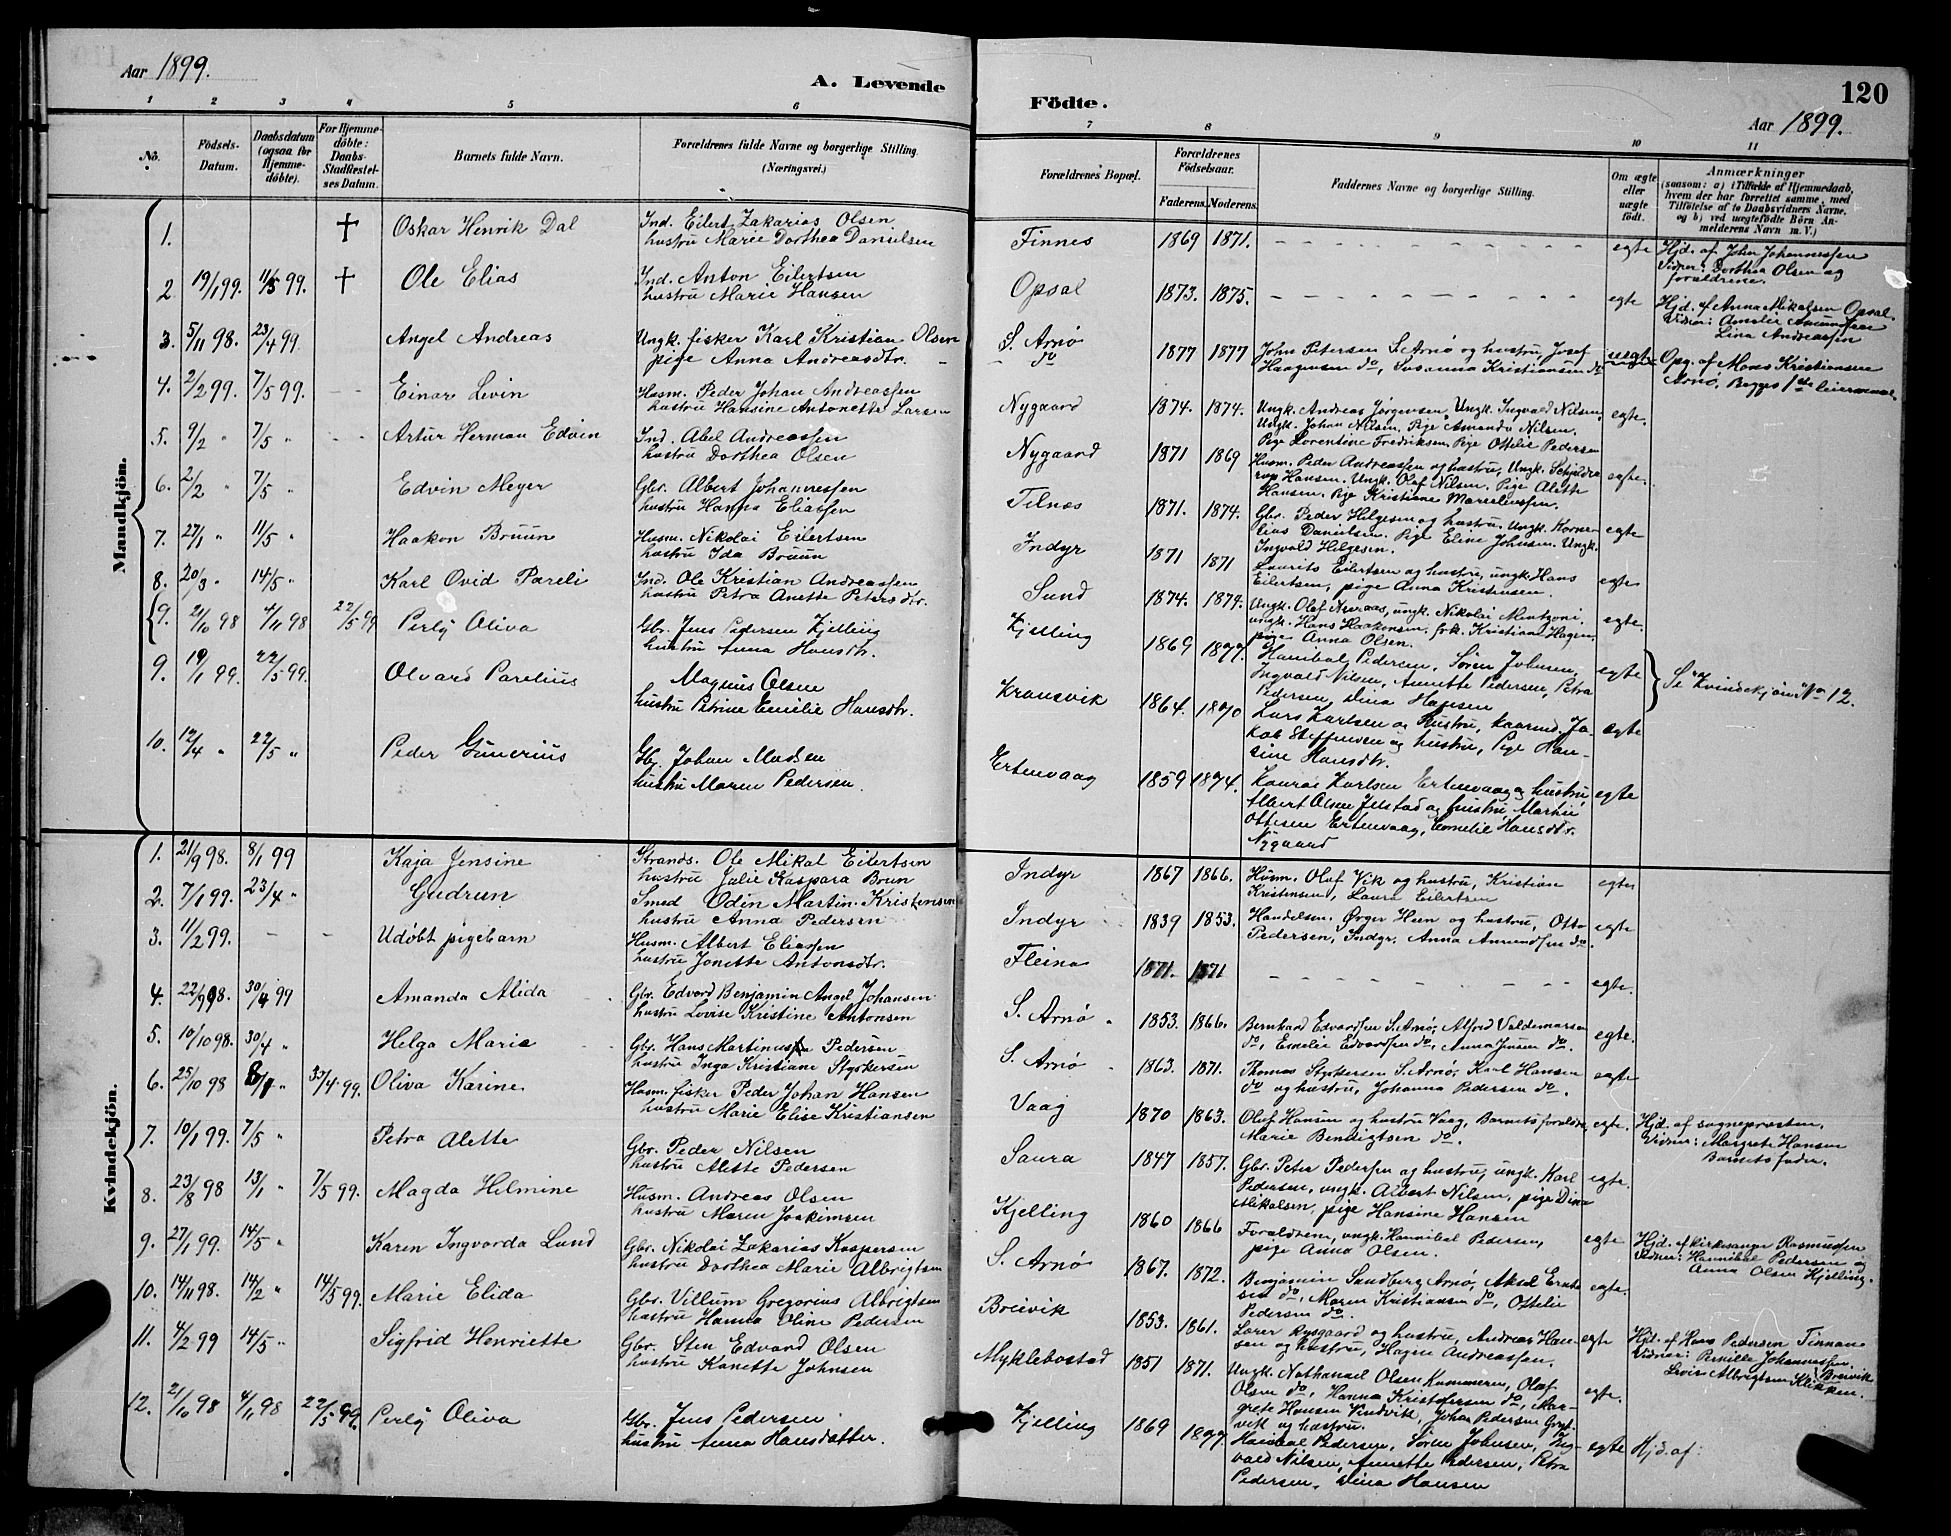 Aar 1899.
A. Levende
1 2 3 4 5 6
No.
Födsels-Datum.
Daabsdatum (ogsaa for Hjemme-döbte).
For Hjemme-döbte: Daabs-Stadfæstel-ses Datum.
Barnets fulde Navn.
Forældrenes fulde Navne og borgerlige Stilling.
(Næringsvei.)
Mandkjön.
1. † Oskar Henrik Dal Ind. Eilert Zakarias Olsen
hustru Marie Dorthea Danielsen
2 19/1 99. 11/5 99. † Ole Elias Ind. Anton Eilertsen
hustru Marie Hansen
3. 5/11 98. 23/4 99 Angel Andreas Ungk. fisker Karl Kristian Olsen
pige Anna Andreasdtr.
4. 2/2 99. 7/5 99. Einar Levin Husm. Peder Johan Andreassen
hustru Hansine Antonette Larsen
5. 9/2 " 7/5 " Artur Herman Edvin Ind. Abel Andreassen
hustru Dorthea Olsen
6. 2/2 " 7/5 " Edvin Meyer Gbr. Albert Johannessen
hustru Hanna Eliassen
7. 27/1 " 11/5 " Haakon Bruun Husm. Nikolai Eilertsen
hustru Ida Bruun
8. 20/3 " 14/5 " Karl Ovid Pareli Ind. Ole Kristian Andreassen
hustru Petra Anette Petersdtr.
9. 21/10 98 4/11 98 22/5 99 Perly Oliva Gbr. Jens Pedersen Kjelling
hustru Anna Hansdtr.
9. 19/1 99. 22/5 99. Olvard Parelius Magnus Olsen
hustru Petrine Emilie Hansdtr.
10. 12/4 " 22/5 " Peder Gunerius Gbr. Johan Madsen
hustru Maren Pedersen.
Kvindekjön.
1. 21/9 98. 8/1 99 Kaja Jensine Strands. Ole Mikal Eilertsen
hustru Julie Kaspara Brun
2. 7/1 99. 23/4 " Gudrun Smed Odin Martin Kristensen
hustru Anna Pedersen
3. 11/2 99. - - Udøbt pigebarn Husm. Albert Eliassen
hustru Jonette Antonsdtr.
4. 22/9 98. 30/4 99 Amanda Alida Gbr. Edvard Benjamin Angel Johansen
hustru Lovise Kristine Antonsen
5. 10/10 98. 30/4 " Helga Marie Gbr. Hans Martinus Pedersen
hustru Inga Kristiane Styrkersen
6. 25/10 98 8/1 " 33/4 99. Oliva Karine Husm. fisker Peder Johan Hansen
hustru Marie Elise Kristiansen
7. 10/1 99. 7/5 " Petra Alette Gbr. Peder Nilsen
hustru Alette Pedersen
8. 23/8 98 13/1 " 7/5 99. Magda Helmine Husm. Andreas Olsen
hustru Maren Joakimsen
9. 27/1 99. 14/5 " Karen Ingvarda Lund Gbr. Nikolai Zakarias Kaspersen
hustru Dorthea Marie Albrigtsen
10. 14/11 98. 14/2 " 14/5 99. Marie Elida Gbr. Villum Gregorius Albrigtsen
hustru Hanna Oline Pedersen
11. 4/2 99 14/5 " Sigfrid Henriette Gbr. Sten Edvard Olsen
hustru Kanette Johnsen
12. 21/10 98 4/11 98 22/5 99. Perly Oliva Gbr. Jens Pedersen
hustru Anna Hansdatter.
120
Födte.
Aar 1899.
7 8 9 10 11
Forældrenes Bopæl.
Forældrenes Födselsaar.
Faderens. Moderens.
Faddernes Navne og borgerlige Stilling.
Om ægte eller uægte födt.
Anmærkninger
(saasom: a) i Tilfælde af Hjemmedaab, hvem der har forrettet samme, med Tilföielse af to Daabsvidners Navne, og b) ved uægtefödte Börn Anmelderens Navn m. V.)
Finnes 1869 1871. egte Hjd. af John Johannessen
Vidner: Dorthea Olsen og
forældrene.
Opsal 1873. 1875. egte Hjd. af Anna Mikalsen Opsal.
Vidner: Amalie Amundsen
Lina Andreassen
S. Arnø
do 1877 1877 John Petersen S. Arnø og hustru, Josef
Haagensen do, Susanna Kristiansen do uegte Opg. af Mons Kristiansen
Arnø, Begges 1ste leiermaal
Nygaard 1874. 1874. Ungk. Andreas Jørgensen, Ungk. Ingvald Nilsen,
Ungk. Johan Nilsen, Pige Amanda Nilsen,
Pige Lorentine Fredriksen, Pige Ottilie Pedersen egte.
Nygaard 1871 1869 Husm. Peder Andreassen og hustru, Ungk. Schjelde
rup Hansen, Ungk. Olaf Nilsen, Pige Alette
Hansen, Pige Kristiane Marceliussen. egte.
Tilnes 1871. 1874. Gbr. Peder Helgesen og hustru, Ungk. Korne-
lius Danielsen, Pige Eline Johnsen. Ungk.
Ingvald Helgesen. egte
Indyr 1871 1871 Laurits Eilertsen og hustru, ungk. Hans
Eilertsen, pige Anna Kristensen. egte
Sund 1874. 1874. Ungk. Olaf Aseraas, ungk. Nikolai Mentzoni,
ungk. Hans Haakensen, frk. Kristian Hagen,
pige Anna Olsen. egte.
Kjelling 1869 1877. Hanibal Pedersen, Søren Johnsen,
Ingvald Nilsen, Annette Pedersen, Petra
Pedersen, Dina Hansen egte Se Kvindekjøn No 12.
Kransvik 1864. 1870 Lars Karlsen og hustru, Ja-
kob Steffensen og hustru, Pige Han-
sine Hansdtr. egte
Ertenvaag 1859 1874. Konrad Karlsen Ertenvaag og hustru,
Albert Olsen Jelstad og hustru, Martin
Ottesen Ertenvaag, Emelie Hansdtr.
Nygaard egte
Indyr 1867 1866. Husm. Olaf Vik og hustru, Kristian
Kristensen, Laura Eilertsen egte
Indyr 1839 1853. Handelsm. Ørger Heen og hustru, Otto
Pedersen, Indyr. Anna Amundsen do. egte
Fleina 1871. 1871 egte.
S. Arnø 1853. 1866. Bernhard Edvardsen S. Arnø, Alfred Valdemarsen
do, Emelie Edvardsen do, Anna Jensen do. egte.
S. Arnø 1863. 1871. Thomas Styrkersen S. Arnø, Karl Hansen
do og hustru, Johanna Pedersen do. egte
Vaag 1870 1863. Olaf Hansen og hustru Vaag, Barnets forældre,
Marie Bendigtsen do. egte. Hjd. af sognepresten.
Vidner: Margrete Hansen
Barnets fader.
Saura 1847 1857. Gbr. Peter Pedersen og hustru, ungk. Karl
Pedersen, ungk. Albert Nilsen, pige Dina
Mikalsen, pige Hansine Hansen egte.
Kjelling 1860 1866 Forældrene, ungk. Hannibal Pedersen,
pige Anna Olsen. egte Hjd. af kirkesanger Rasmussen
Vidner: Hannibal Pedersen og
Anna Olsen Kjelling.
S. Arnø 1867. 1872. Benjamin Sandberg Arnø, Aksel Ernst-
sen do, Maren Kristiansen do, Ottelie
Pedersen do egte.
Breivik 1853. 1861. Lærer Rysgaard og hustru, Andreas Han-
sen og hustru, Hagen Andreassen. egte Hjd. af Hans Pedersen Finnan
Vidner: Pernille Johannessen Breivik
Lovise Albrigtsen Klikken.
Myklebostad 1851 1871. Ungk. Nathanael Olsen Kummeren, Olaf
Olsen do, Hanna Kristofersen do, Mar-
grete Hansen Vindvik, Johan Pedersen
og hustru. egte.
Kjelling 1869 1877 Hanibal Pedersen, Søren Johnsen, Ing-
vald Nilsen, Annette Pedersen, Petra
Pedersen, Dina Hansen egte Hjd. af: